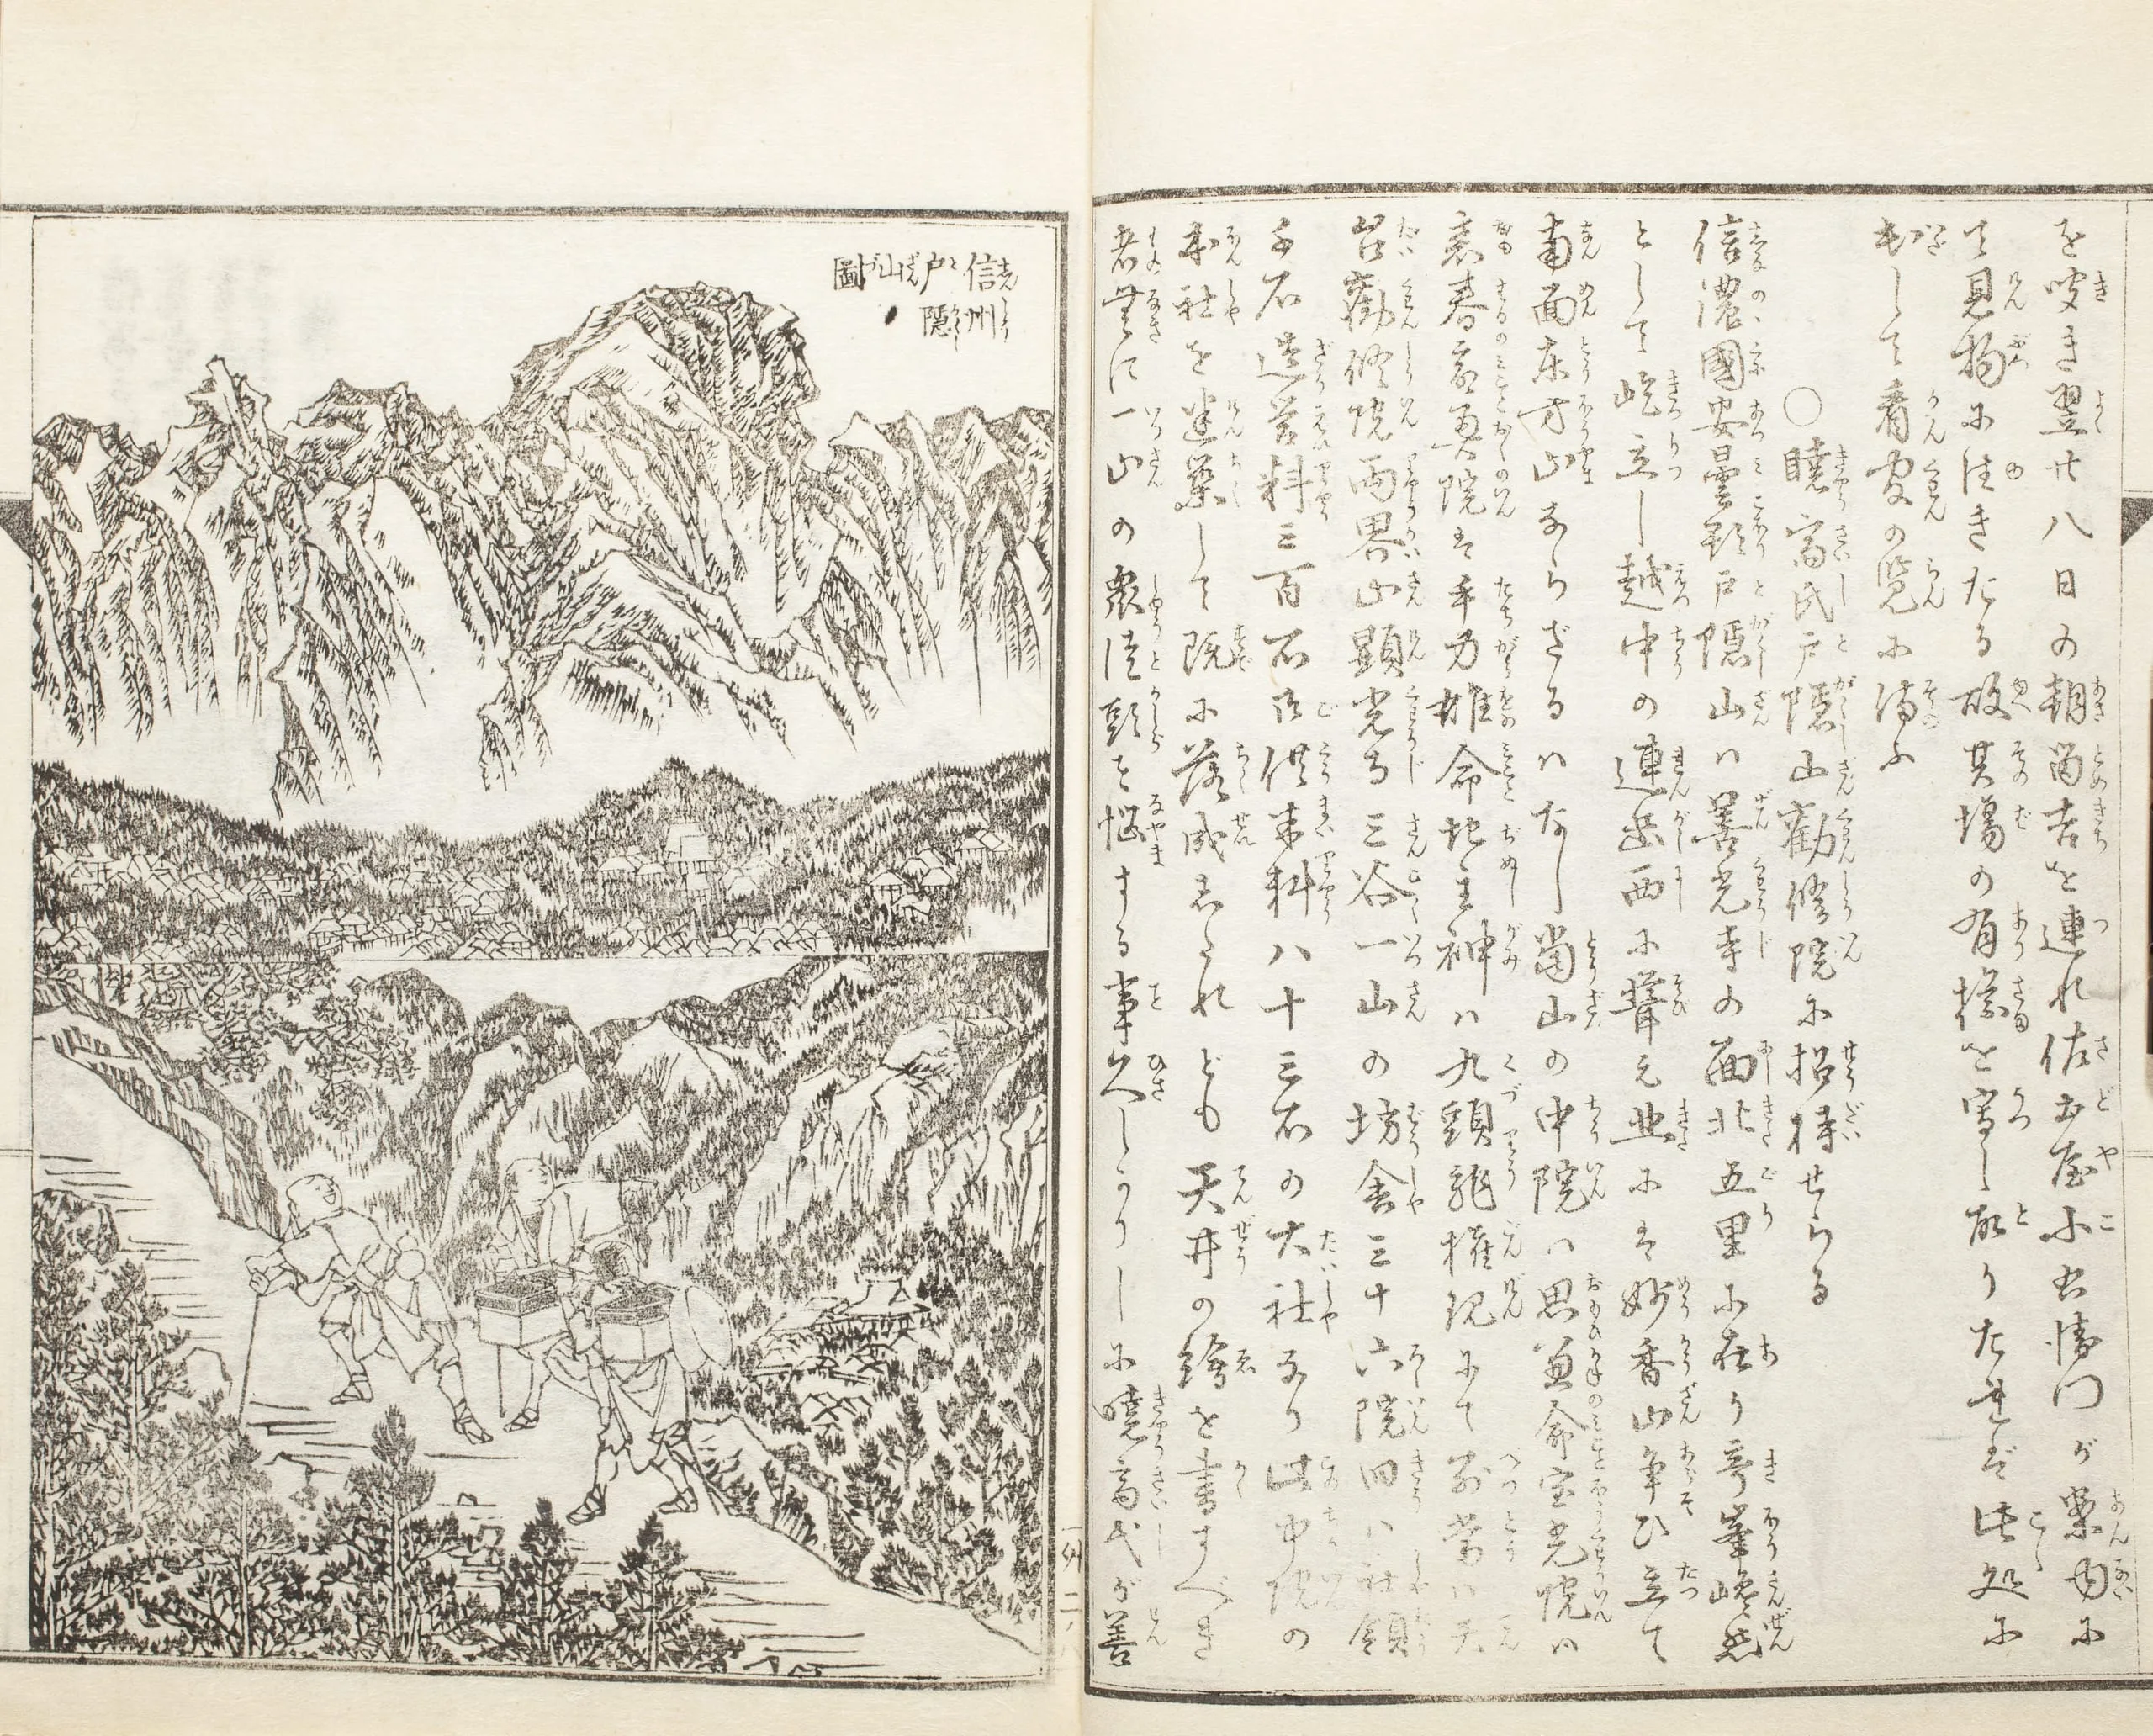 を聞き翌廿八日の朝留吉を連れ佐土屋小右衛門が案内に
て見物に往きたる故其場の有様を写し取りたれば此処に
出して看官の覧に備ふ
○暁斎氏戸隠山勧修院に招待せらる
信濃國安曇郡戸隠山ハ善光寺の西北五里に在り奇峯巉然
として屹立し越中の連岳西に聳え北にハ妙香山争ひ立て
南面東方山ならざるハなし當山の中院ハ思兼命宝光院ハ
表春命奥院は手力雄命地主神ハ九頭龍権現にて別當ハ天
台勧修院両界山顕光寺三谷一山の坊舎三十六院旧ハ社領
千石造営料三百石御供米料八十三石の大社なり此中院の
本社を建築して既に落成したれども天井の繪を書すべき
者無に一山の衆徒頭を悩する事久しかりしに暁斎氏が善
信州
戸隠
山
圖